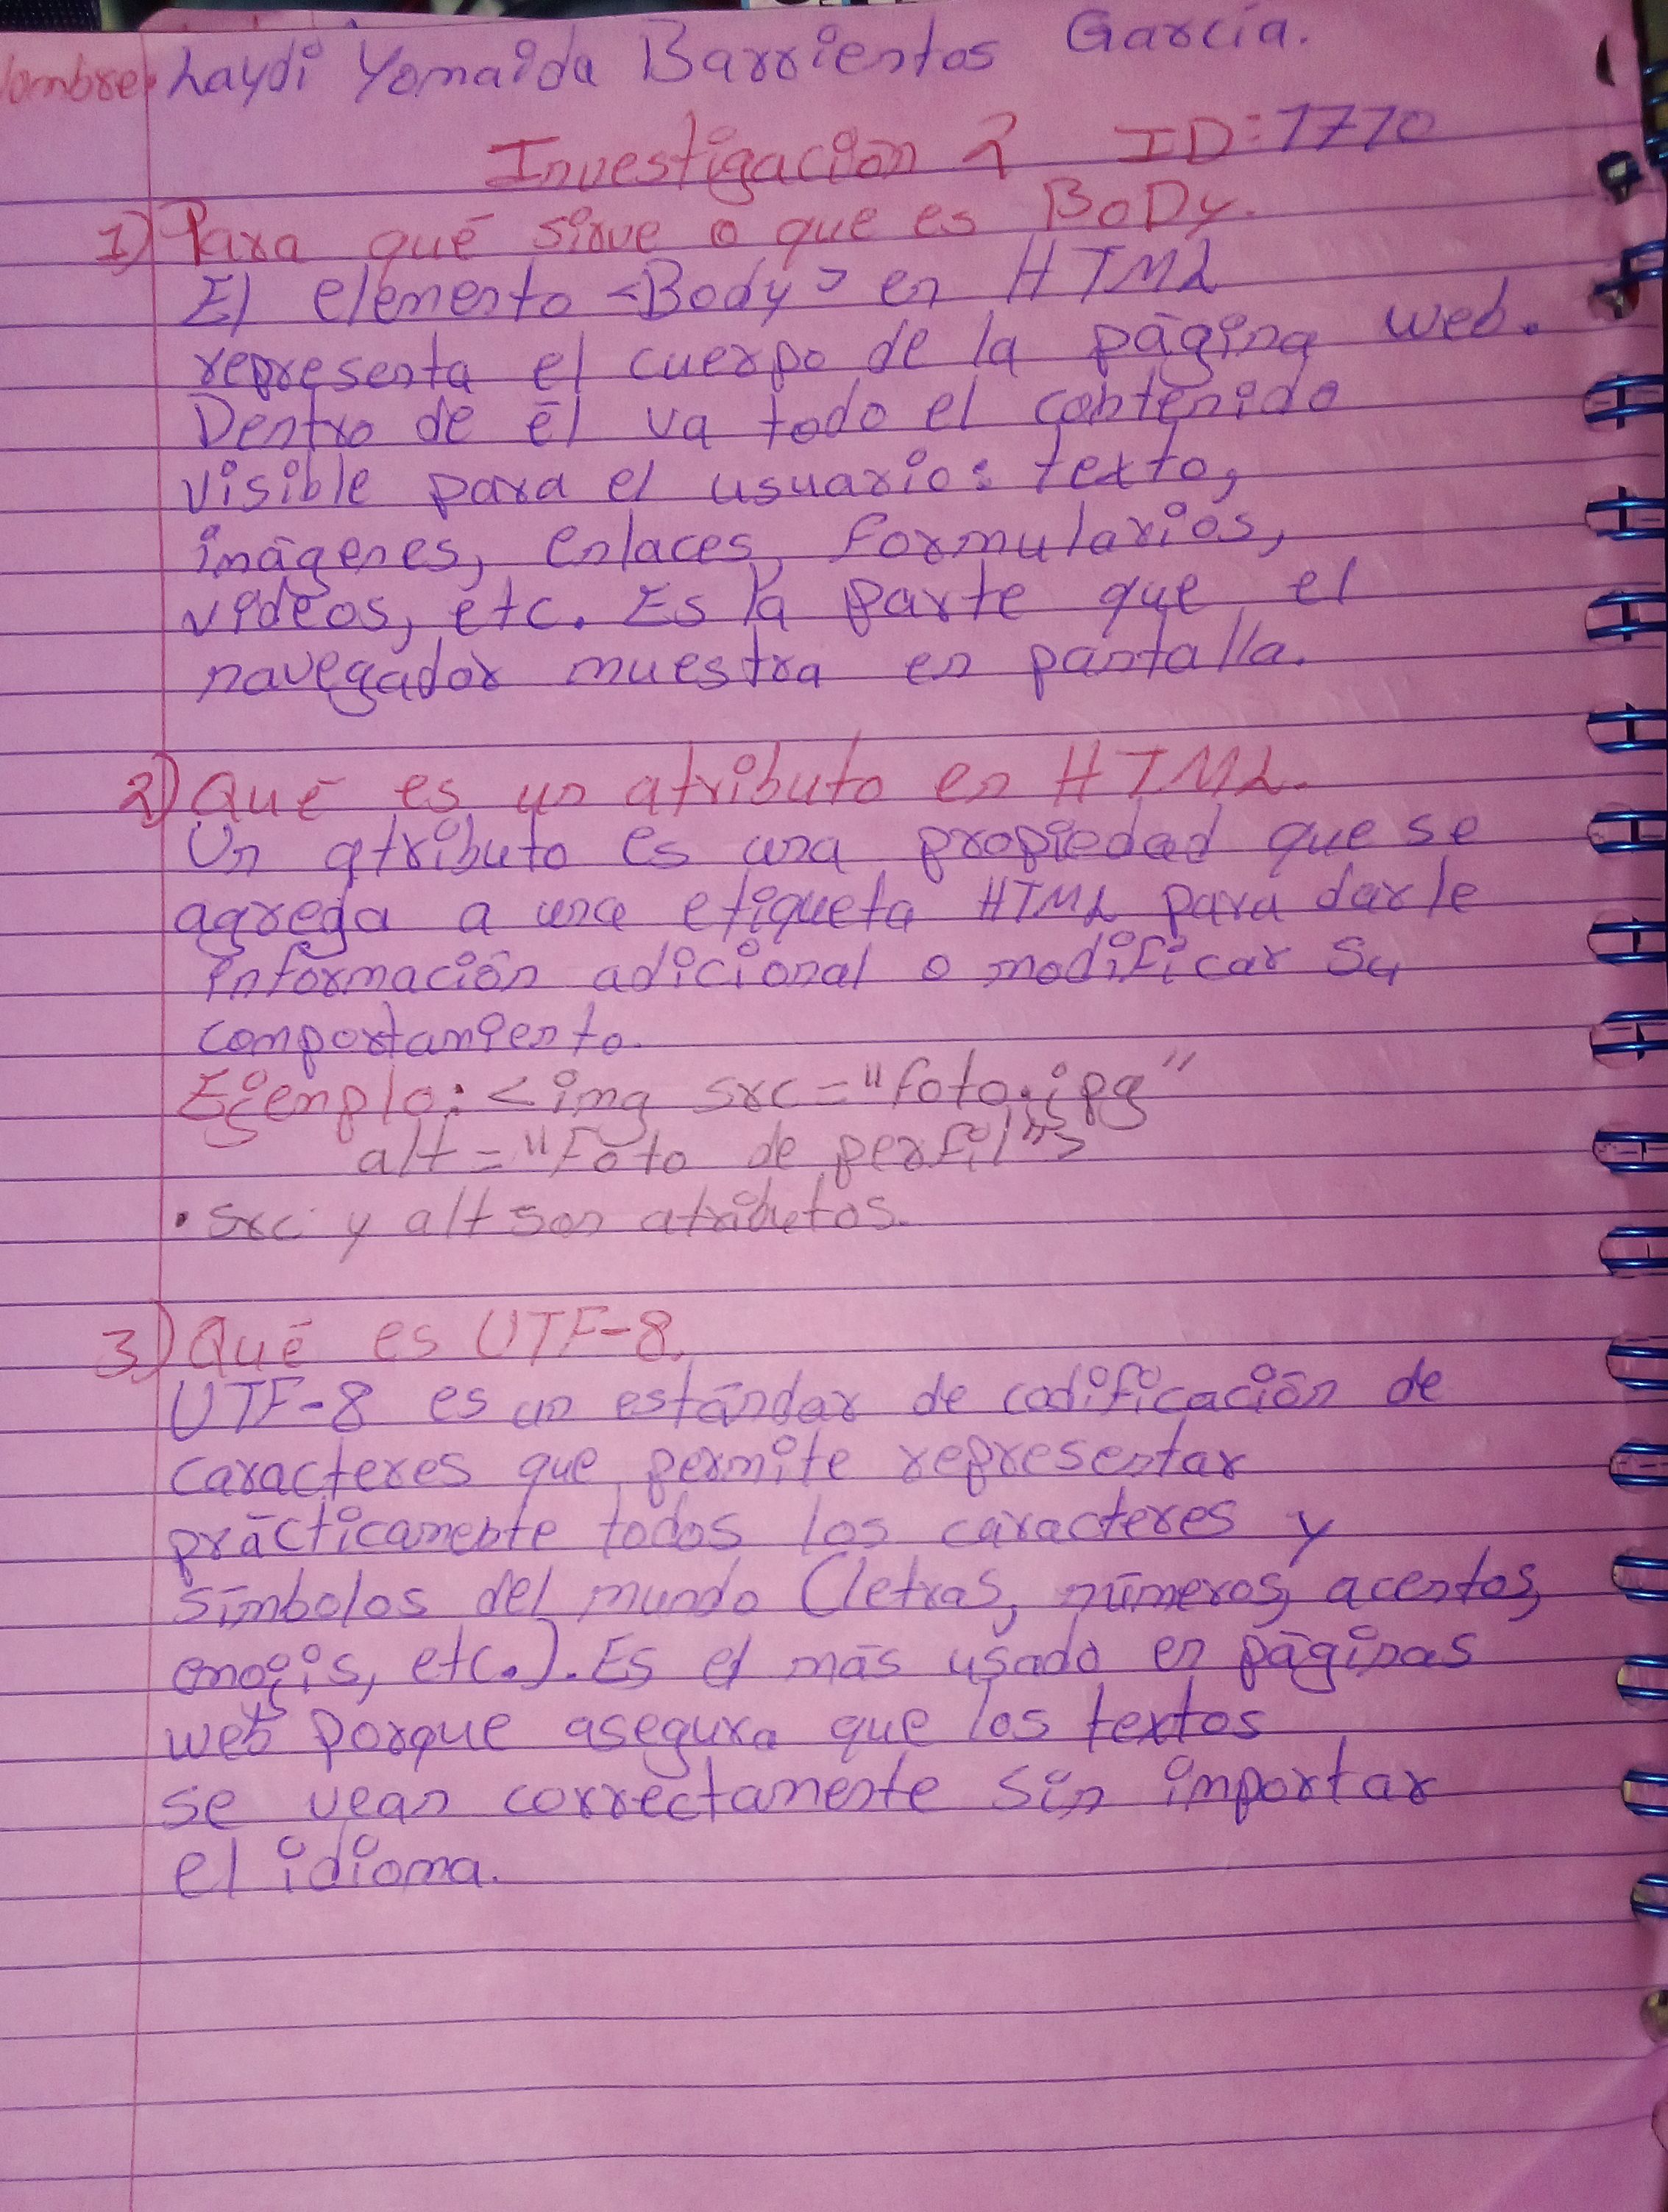 Nombre: Laydi Yomaida Barrientos García.
Investigación 2 ID: 1770
1) Para qué sirve o que es BoDy.
El elemento <Body> en HTML
representa el cuerpo de la página web.
Dentro de él va todo el contenido
visible para el usuario: texto,
imágenes, enlaces, formularios,
videos, etc. Es la parte que el
navegador muestra en pantalla.
2) Qué es un atributo en HTML.
Un atributo es una propiedad que se
agrega a una etiqueta HTML para darle
información adicional o modificar su
comportamiento.
Ejemplo: <img src="foto.jpg"
alt="Foto de perfil">
• src y alt son atributos.
3) Qué es UTF-8.
UTF-8 es un estándar de codificación de
caracteres que permite representar
prácticamente todos los caracteres y
símbolos del mundo (letras, números, acentos,
emojis, etc.). Es el más usado en páginas
web porque asegura que los textos
se vean correctamente sin importar
el idioma.